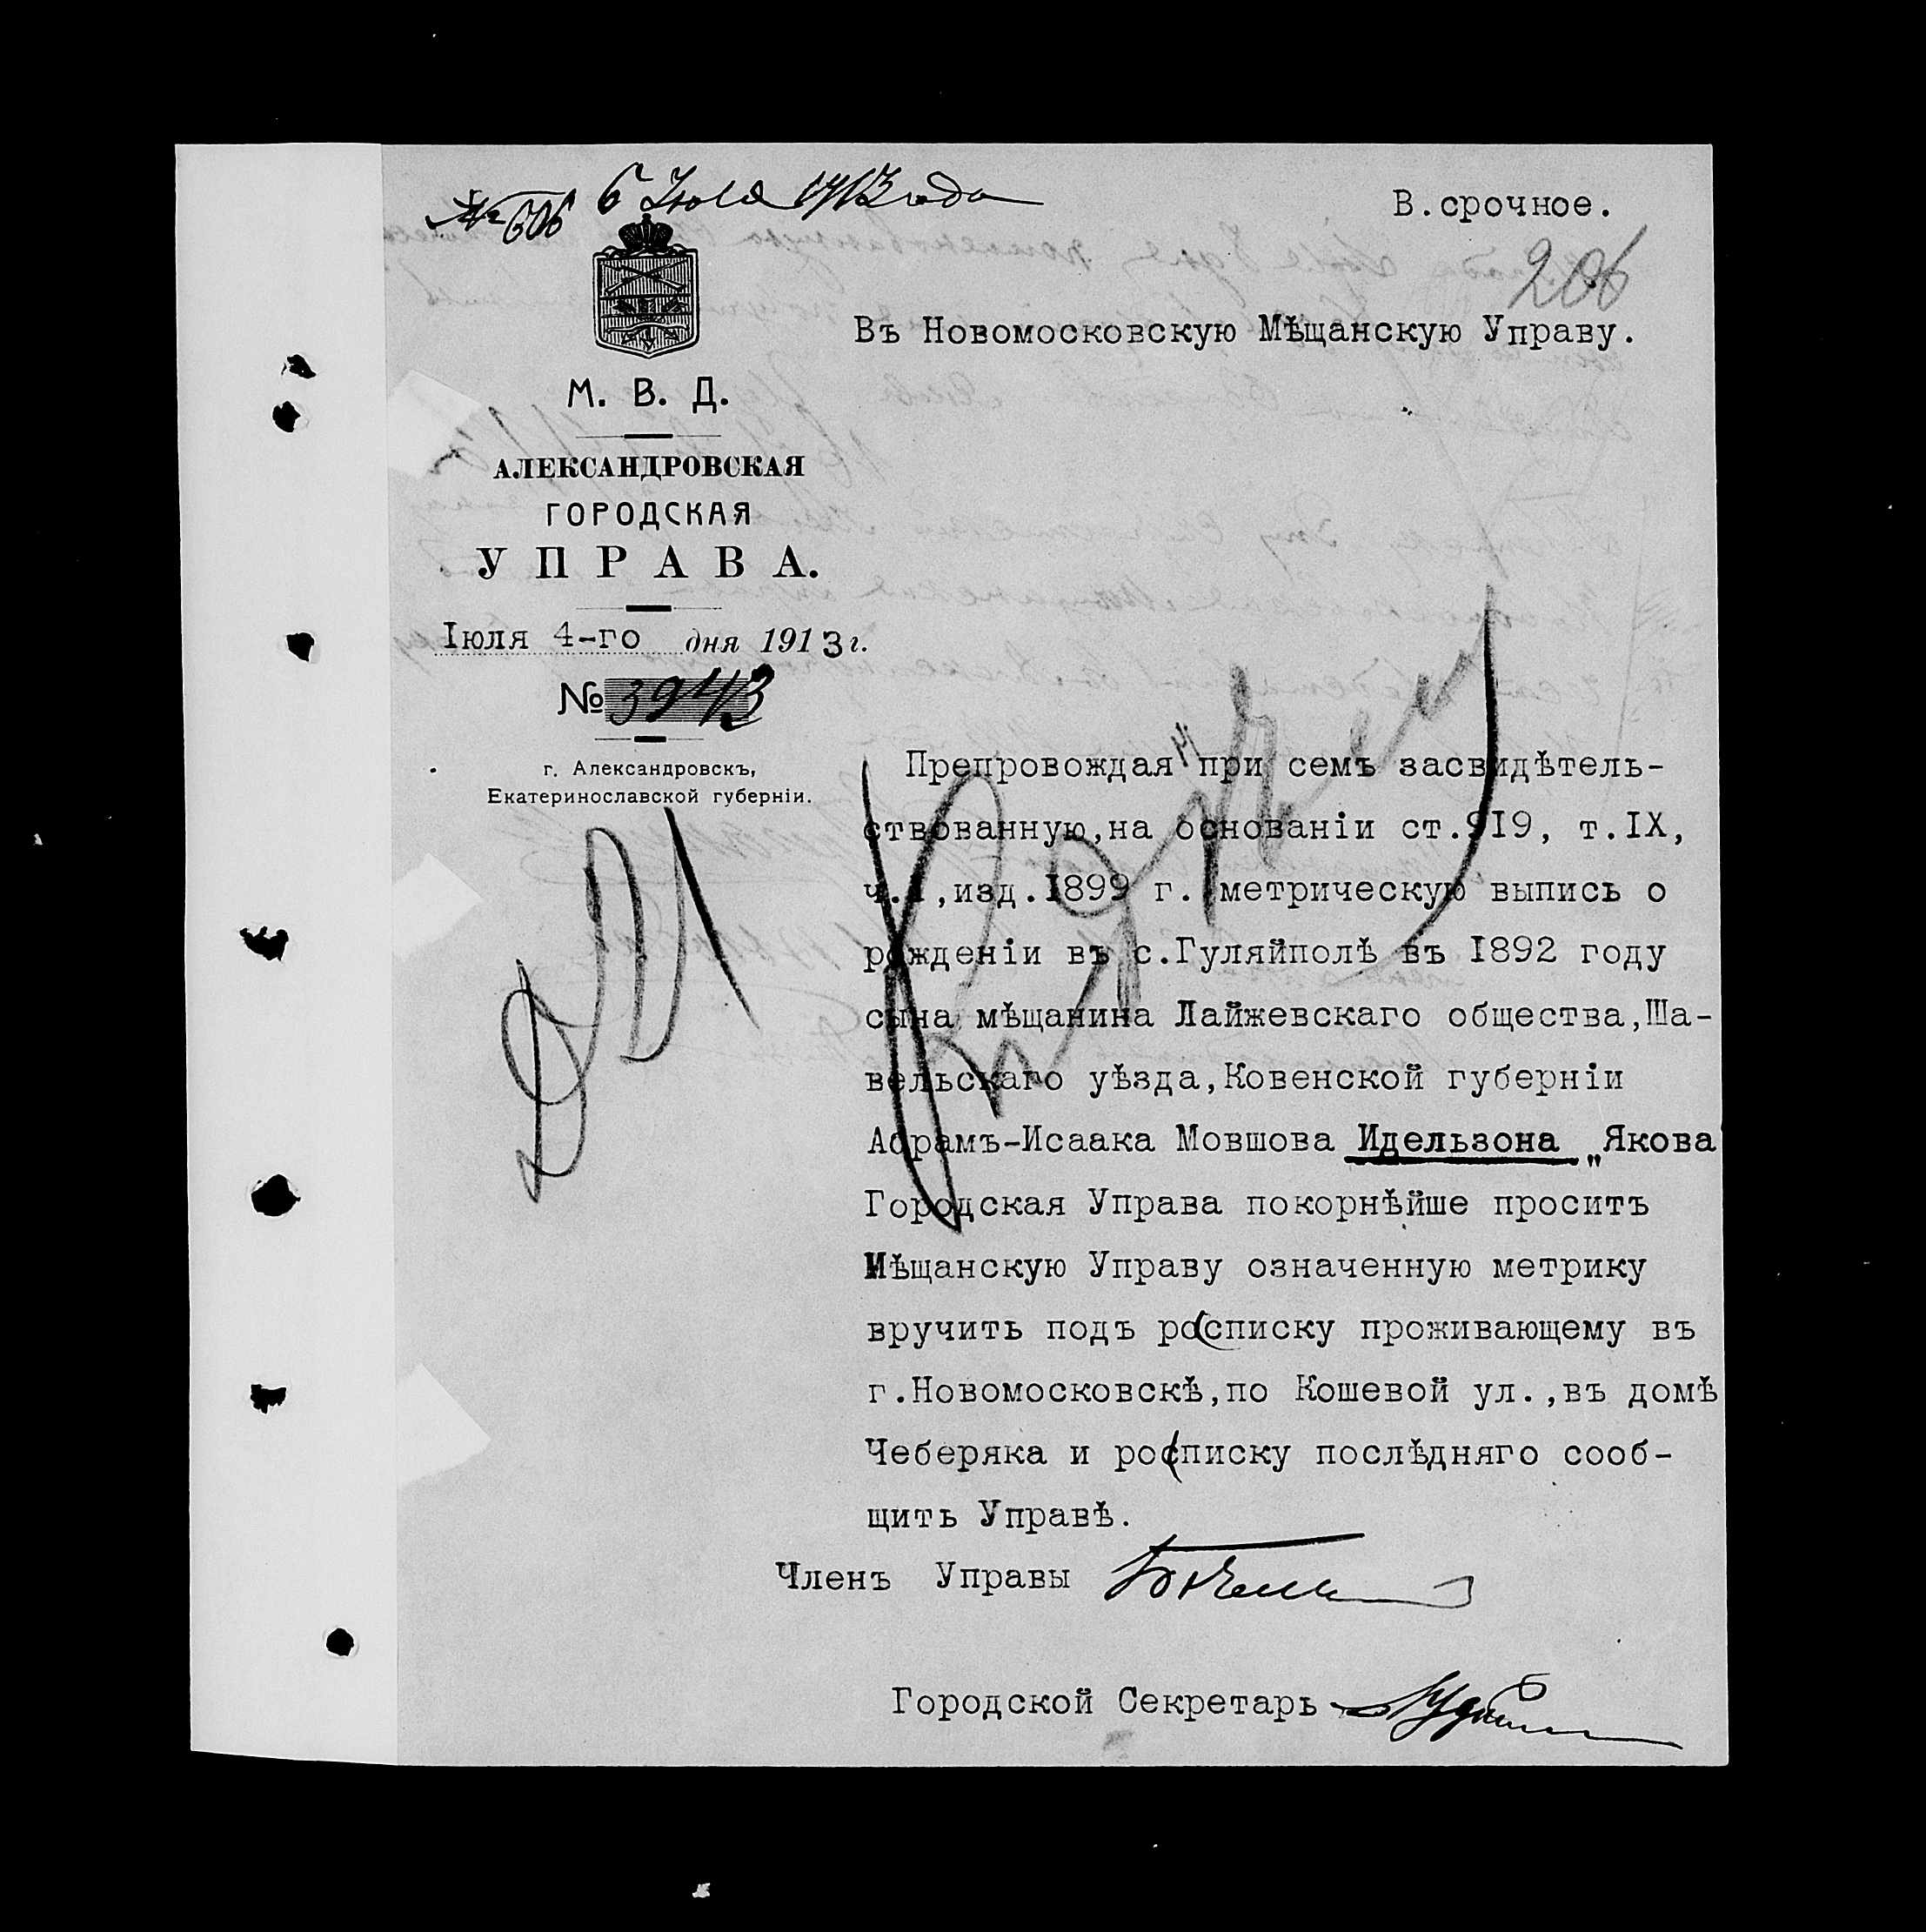 № 606 6 Июля 1913 года
В.срочное.
206
Въ Новомосковскую Мѣщанскую Управу.
М. В. Д.
АЛЕКСАНДРОВСКАЯ
ГОРОДСКАЯ
УПРАВА.
Iюля 4-го дня 1913 г.
№ 3943
г. Александровскъ,
Екатеринославской губернiи.
Препровождая при семъ засвидѣтель-
ствованную,на основанiи ст.919, т.IX,
ч.I,изд.1899 г. метрическую выпись о
рожденiи въ с.Гуляйполѣ въ 1892 году
сына мѣщанина Лайжевскаго общества,Ша-
вельскаго уѣзда,Ковенской губернiи
Абрамъ-Исаака Мовшова Идельзона „Якова
Городская Управа покорнѣйше проситъ
Мѣщанскую Управу означенную метрику
вручить подъ росписку проживающему въ
г.Новомосковскѣ,по Кошевой ул.,въ домѣ
Чеберяка и росписку послѣдняго сооб-
щить Управѣ.
Членъ Управы
Городской Секретарь